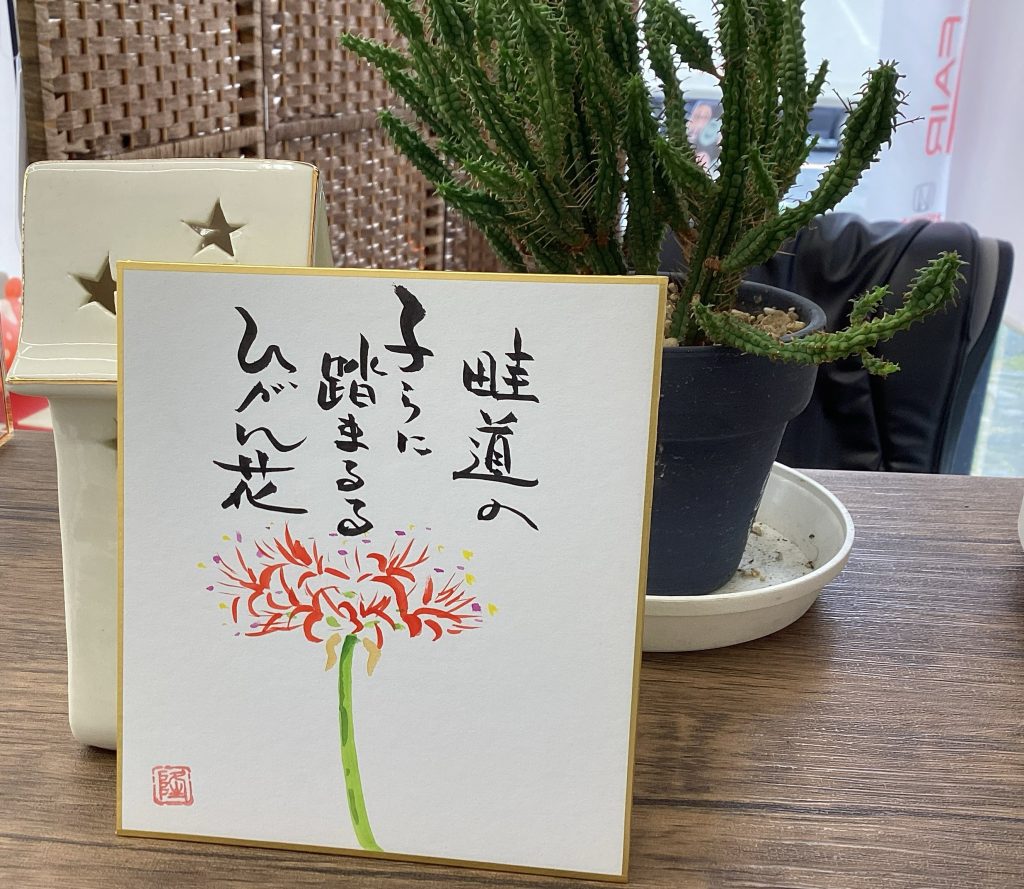 畦道の
子らに
踏まるる
ひがん花
隆
FAIR